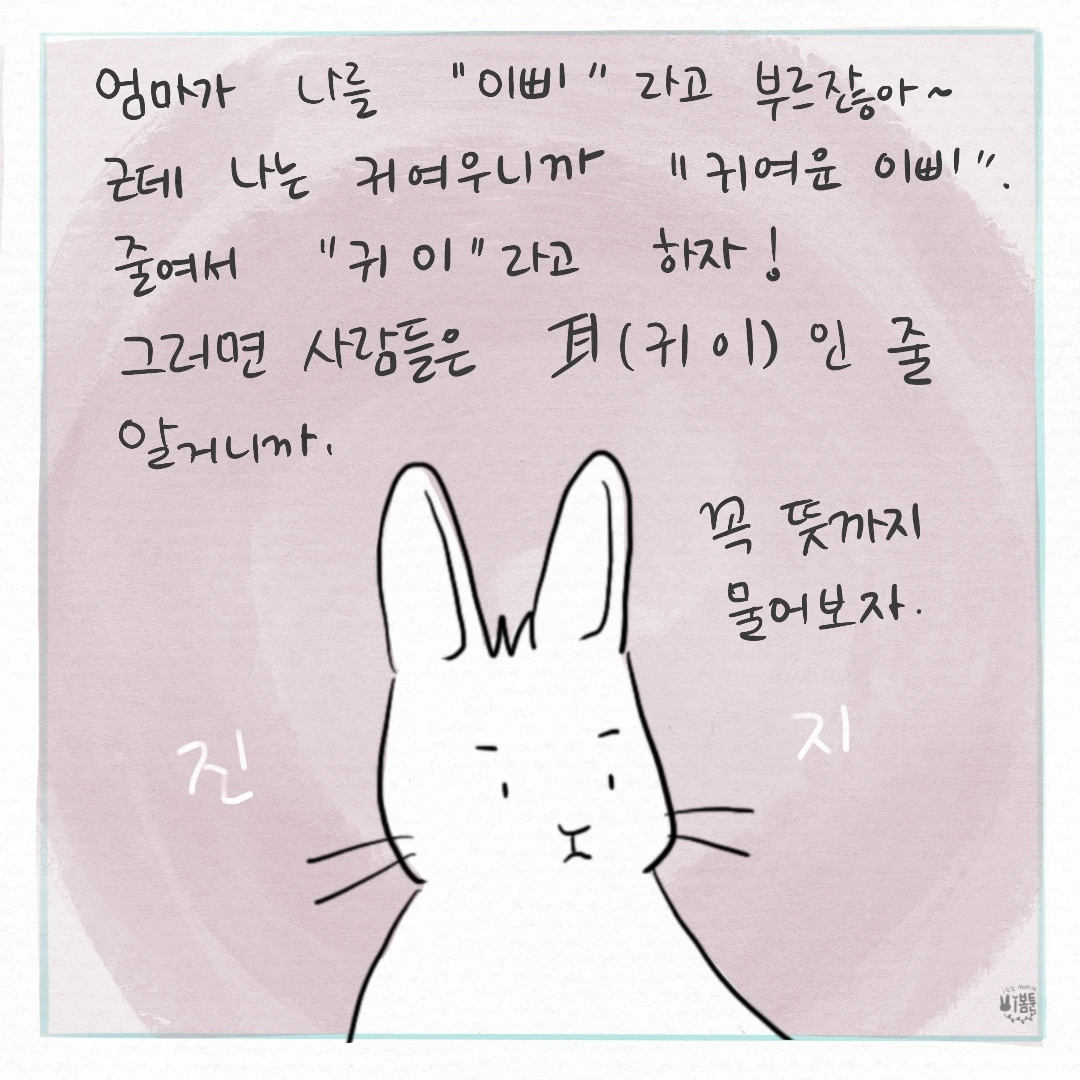 엄마가 나를 "이삐"라고 부르잖아~
근데 나는 귀여우니까 "귀여운 이삐".
줄여서 "귀이"라고 하자!
그러면 사람들은 耳(귀이)인 줄
알거니까.
꼭 뜻까지
물어보자.
진 지